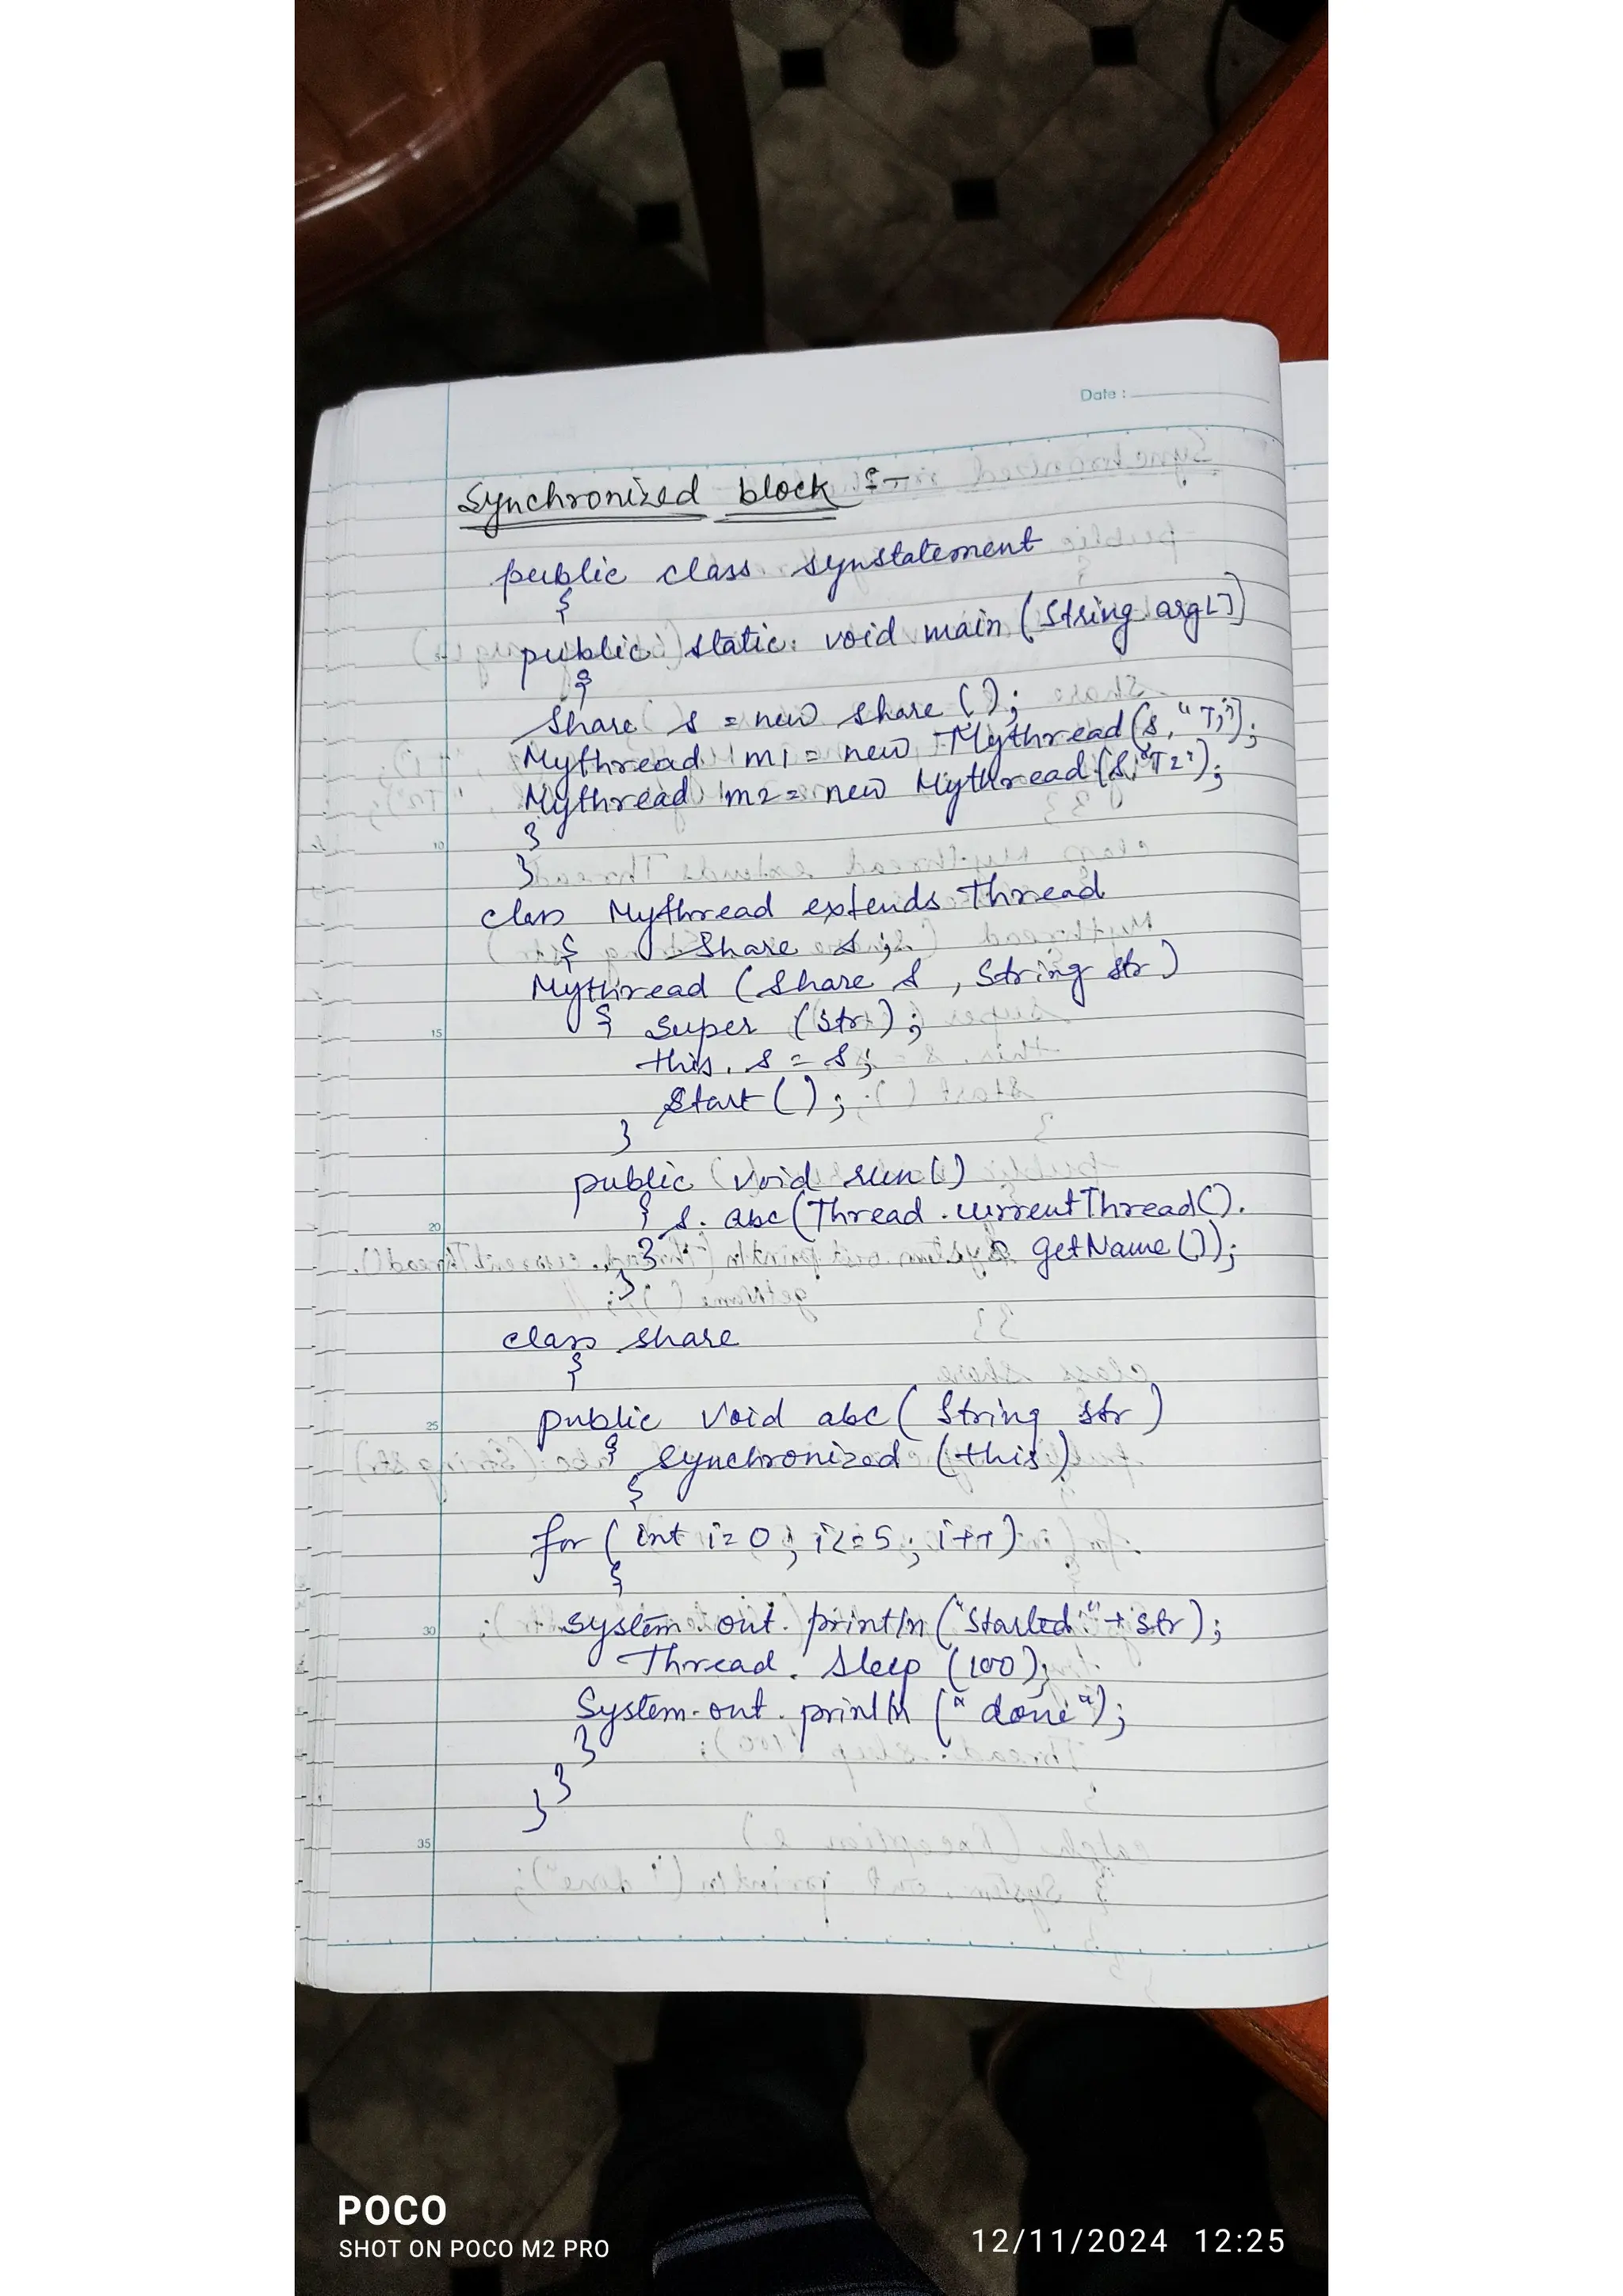 Date :
Synchronized block :-
public class synstatement
{
public static void main (String arg[])
{
Share s = new share ();
Mythread m1 = new Mythread(s, "T1");
Mythread m2 = new Mythread(s, "T2");
}
}
class Mythread extends Thread
{ Share s;
Mythread (Share s, String str)
{ super (str);
this. s = s;
Start ();
}
public void run()
{ s. abc(Thread . currentThread().
} getName());
}
class share
{
public void abc( String str )
{ synchronized (this)
{
for ( int i=0 ; i<=5 ; i++)
{
system out. println ("Started:" + str);
Thread. Sleep (100);
System.out. println (" done");
}
}
}
10
15
20
25
30
35
POCO
SHOT ON POCO M2 PRO
12/11/2024 12:25